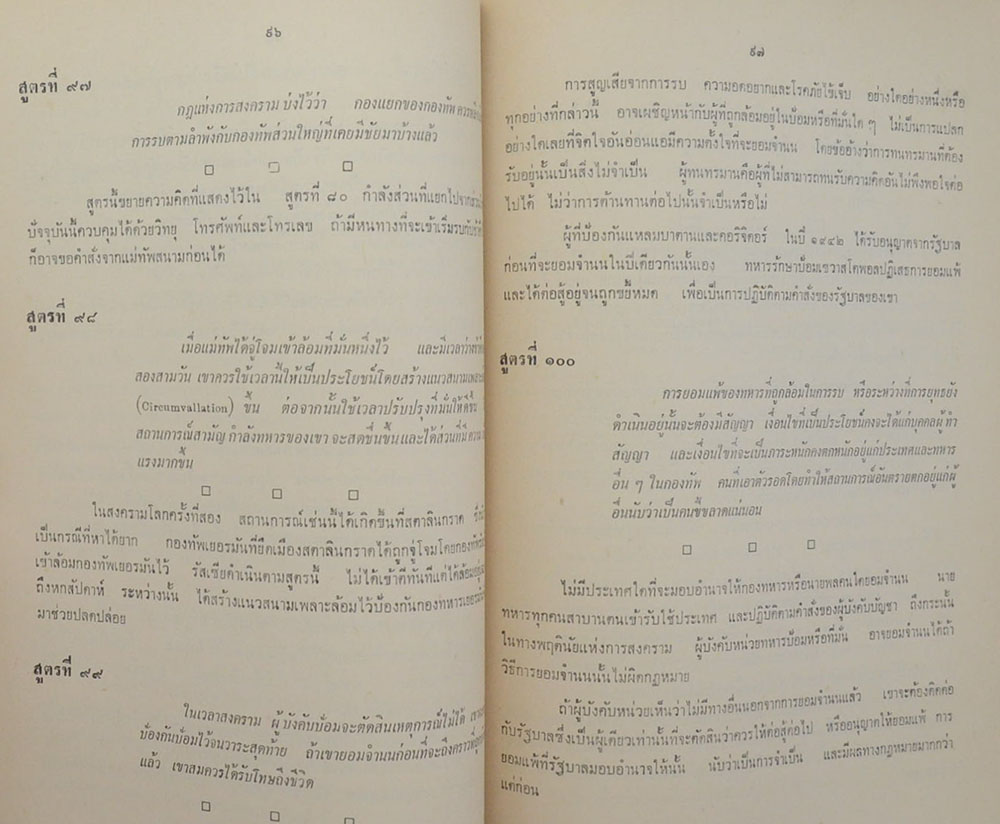 ๙๖
สูตรที่ ๙๗
กฎแห่งการสงคราม บ่งไว้ว่า กองแยกของกองทัพ
การรบตามลำพังกับกองทัพส่วนใหญ่ที่เคยมีชัยมาบ้างแล้ว
สูตรนี้ขยายความคิดที่แสดงไว้ใน สูตรที่ ๘๐ กำลังส่วนที่แยกไป
ปัจจุบันนี้ควบคุมได้ด้วยวิทยุ โทรศัพท์และโทรเลข ถ้ามีหนทางที่จะเข้าเริ่มรบ
ก็อาจขอคำสั่งจากแม่ทัพสนามก่อนได้
สูตรที่ ๙๘
เมื่อแม่ทัพได้จู่โจมเข้าล้อมที่มั่นหนึ่งไว้ และมีเวลาว่าง
สองสามวัน เขาควรใช้เวลานี้ให้เป็นประโยชน์โดยสร้างแนวสนามเพลาะ
(Circumvallation) ขึ้น ต่อจากนั้นใช้เวลาปรับปรุงที่มั่นให้ดีขึ้น
สถานการณ์สามัญ กำลังทหารของเขา จะสดชื่นขึ้น และได้ส่วนที่มี
แรงมากขึ้น
ในสงครามโลกครั้งที่สอง สถานการณ์เช่นนี้ได้เกิดขึ้นที่สตาลินกราด
เป็นกรณีที่หาได้ยาก กองทัพเยอรมันที่ยึดเมืองสตาลินกราดได้ถูกจู่โจมโดยกองทัพ
เข้าล้อมกองทัพเยอรมันไว้ รัสเซียดำเนินตามสูตรนี้ ไม่ได้เข้าตีทันทีแต่ได้ล้อม
ถึงหกสัปดาห์ ระหว่างนั้น ได้สร้างแนวสนามเพลาะล้อมไว้ป้องกันกองทหาร
มาช่วยปลดปล่อย
สูตรที่ ๙๙
ในเวลาสงคราม ผู้บังคับป้อมจะตัดสินเหตุการณ์ไม่ได้
ป้องกันป้อมไว้จนวาระสุดท้าย ถ้าเขายอมจำนนก่อนที่จะถึงคราว
แล้ว เขาสมควรได้รับโทษถึงชีวิต
๙๗
การสูญเสียจากการรบ ความอดอยากและโรคภัยไข้เจ็บ อย่างใดอย่างหนึ่งหรือ
ทุกอย่างที่กล่าวนี้ อาจเผชิญหน้ากับผู้ที่ถูกล้อมอยู่ในป้อมหรือที่มั่นใด ๆ ไม่เป็นการแปลก
อย่างใดเลยที่จิตใจอันอ่อนแอมีความตั้งใจที่จะยอมจำนน โดยข้ออ้างว่าการทนทรมานที่ต้อง
รับอยู่นั้นเป็นสิ่งไม่จำเป็น ผู้ทนทรมานคือผู้ที่ไม่สามารถทนรับความคิดอันไม่พึงพอใจต่อ
ไปได้ ไม่ว่าการต้านทานต่อไปนั้นจำเป็นหรือไม่
ผู้ที่ป้องกันแหลมบาตานและคอริจิดอร์ ในปี ๑๙๔๒ ได้รับอนุญาตจากรัฐบาล
ก่อนที่จะยอมจำนนในปีเดียวกันนั้นเอง ทหารรักษาป้อมเซวาสโตพอลปฏิเสธการยอมแพ้
และได้ต่อสู้อยู่จนถูกขยี้หมด เพื่อเป็นการปฏิบัติตามคำสั่งของรัฐบาลของเขา
สูตรที่ ๑๐๐
การยอมแพ้ของทหารที่ถูกล้อมในการรบ หรือระหว่างที่การยุทธยัง
ดำเนินอยู่นั้นจะต้องมีสัญญา เงื่อนไขที่เป็นประโยชน์คงจะได้แก่บุคคลผู้ทำ
สัญญา และเงื่อนไขที่จะเป็นภาระหนักคงตกหนักอยู่แก่ประเทศและทหาร
อื่น ๆ ในกองทัพ คนที่เอาตัวรอดโดยทำให้สถานการณ์อันตรายตกอยู่แก่ผู้
อื่นนับว่าเป็นคนขี้ขลาดแน่นอน
ไม่มีประเทศใดที่จะมอบอำนาจให้กองทหารหรือนายพลคนใดยอมจำนน นาย
ทหารทุกคนสาบานตนเข้ารับใช้ประเทศ และปฏิบัติตามคำสั่งของผู้บังคับบัญชา ถึงกระนั้น
ในทางพฤตินัยแห่งการสงคราม ผู้บังคับหน่วยทหารป้อมหรือที่มั่น อาจยอมจำนนได้ถ้า
วิธีการยอมจำนนนั้นไม่ผิดกฎหมาย
ถ้าผู้บังคับหน่วยเห็นว่าไม่มีทางอื่นนอกจากการยอมจำนนแล้ว เขาจะต้องติดต่อ
กับรัฐบาลซึ่งเป็นผู้เดียวเท่านั้นที่จะตัดสินว่าควรให้ต่อสู้ต่อไป หรืออนุญาตให้ยอมแพ้ การ
ยอมแพ้ที่รัฐบาลมอบอำนาจให้นั้น นับว่าเป็นการจำเป็น และมีผลทางกฎหมายมากกว่า
แต่ก่อน